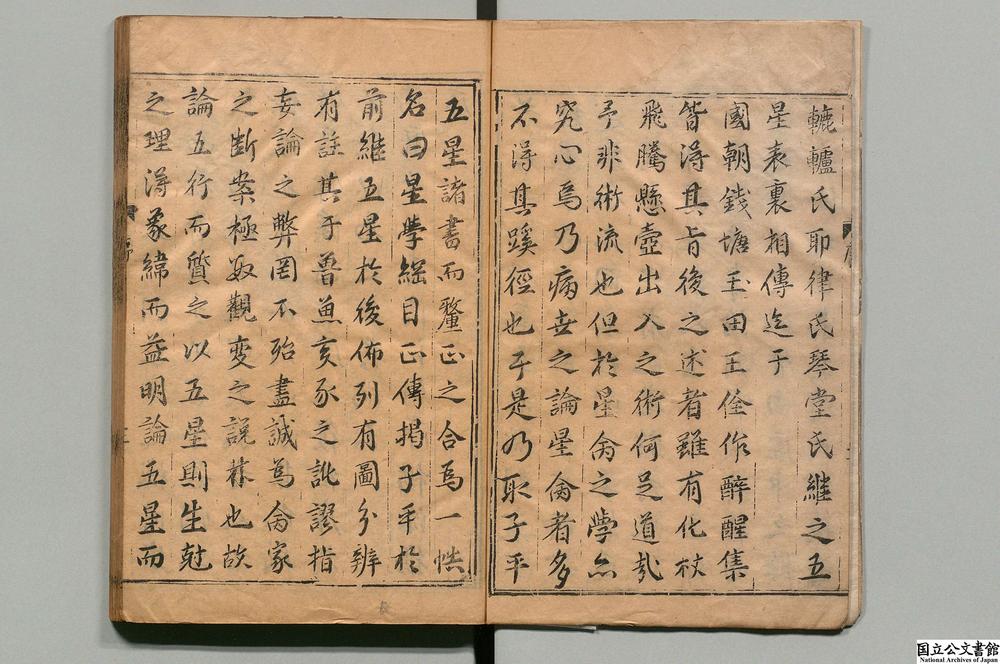 轆轤氏耶律氏琴堂氏継之五
星表裏相傳迄于
國朝錢塘玉田王佺作醉醒集
皆得其旨後之述者雖有化杖
飛騰懸壺出入之術何足道哉
予非術流也但於星禽之學亦
究心焉乃病世之論星禽者多
不得其蹊徑也于是乃取子平
五星諸書而釐正之合為一帙
名曰星學綱目正傳揭子平於
前継五星於後佈列有圖分辨
有註其于魯魚亥豕之訛謬指
妄論之弊罔不殆盡誠為禽家
之斷案極致觀變之說棼也故
論五行而質之以五星則生尅
之理得象緯而益明論五星而
序
国立公文書館
National Archives of Japan